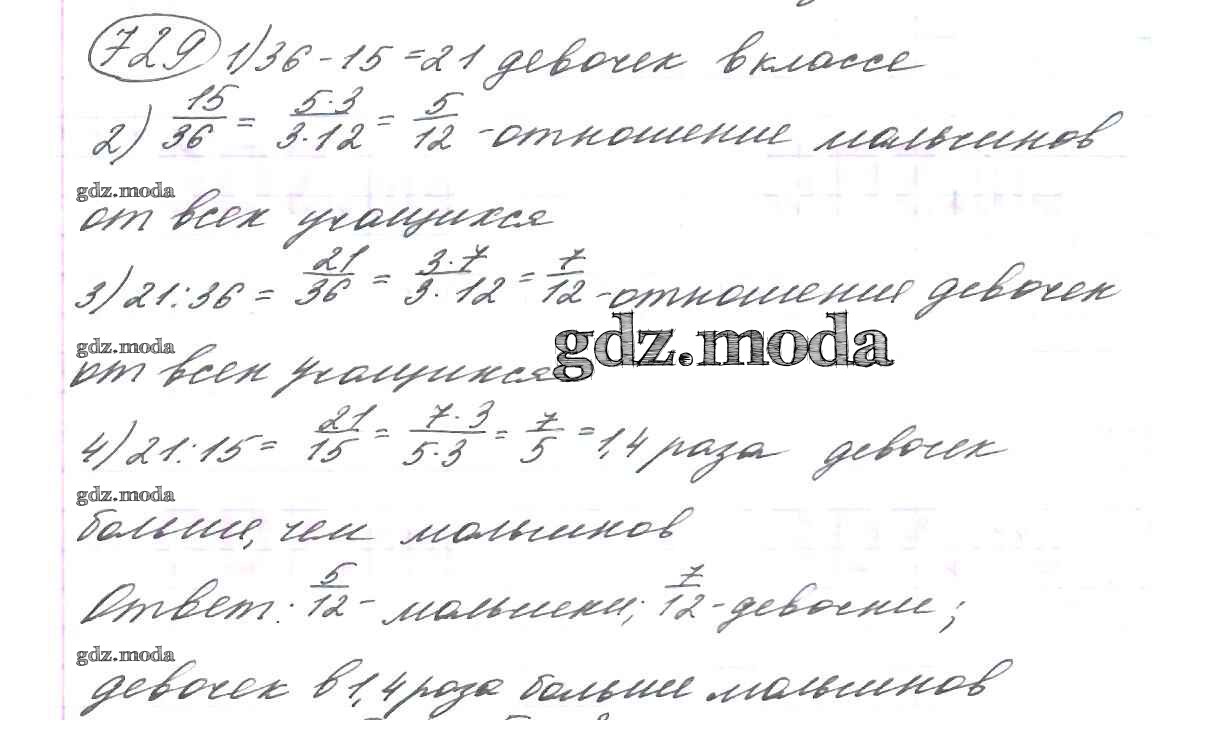 729 1) 36 - 15 = 21 девочек в классе
2) 15/36 = 5·3/3·12 = 5/12 - отношение мальчиков
gdz.moda
от всех учащихся
3) 21:36 = 21/36 = 3·7/3·12 = 7/12 - отношение девочек
gdz.moda
gdz.moda
от всех учащихся
4) 21:15 = 21/15 = 7·3/5·3 = 7/5 = 1,4 раза девочек
gdz.moda
больше, чем мальчиков
Ответ: 5/12 - мальчики; 7/12 - девочки;
gdz.moda
девочек в 1,4 раза больше мальчиков